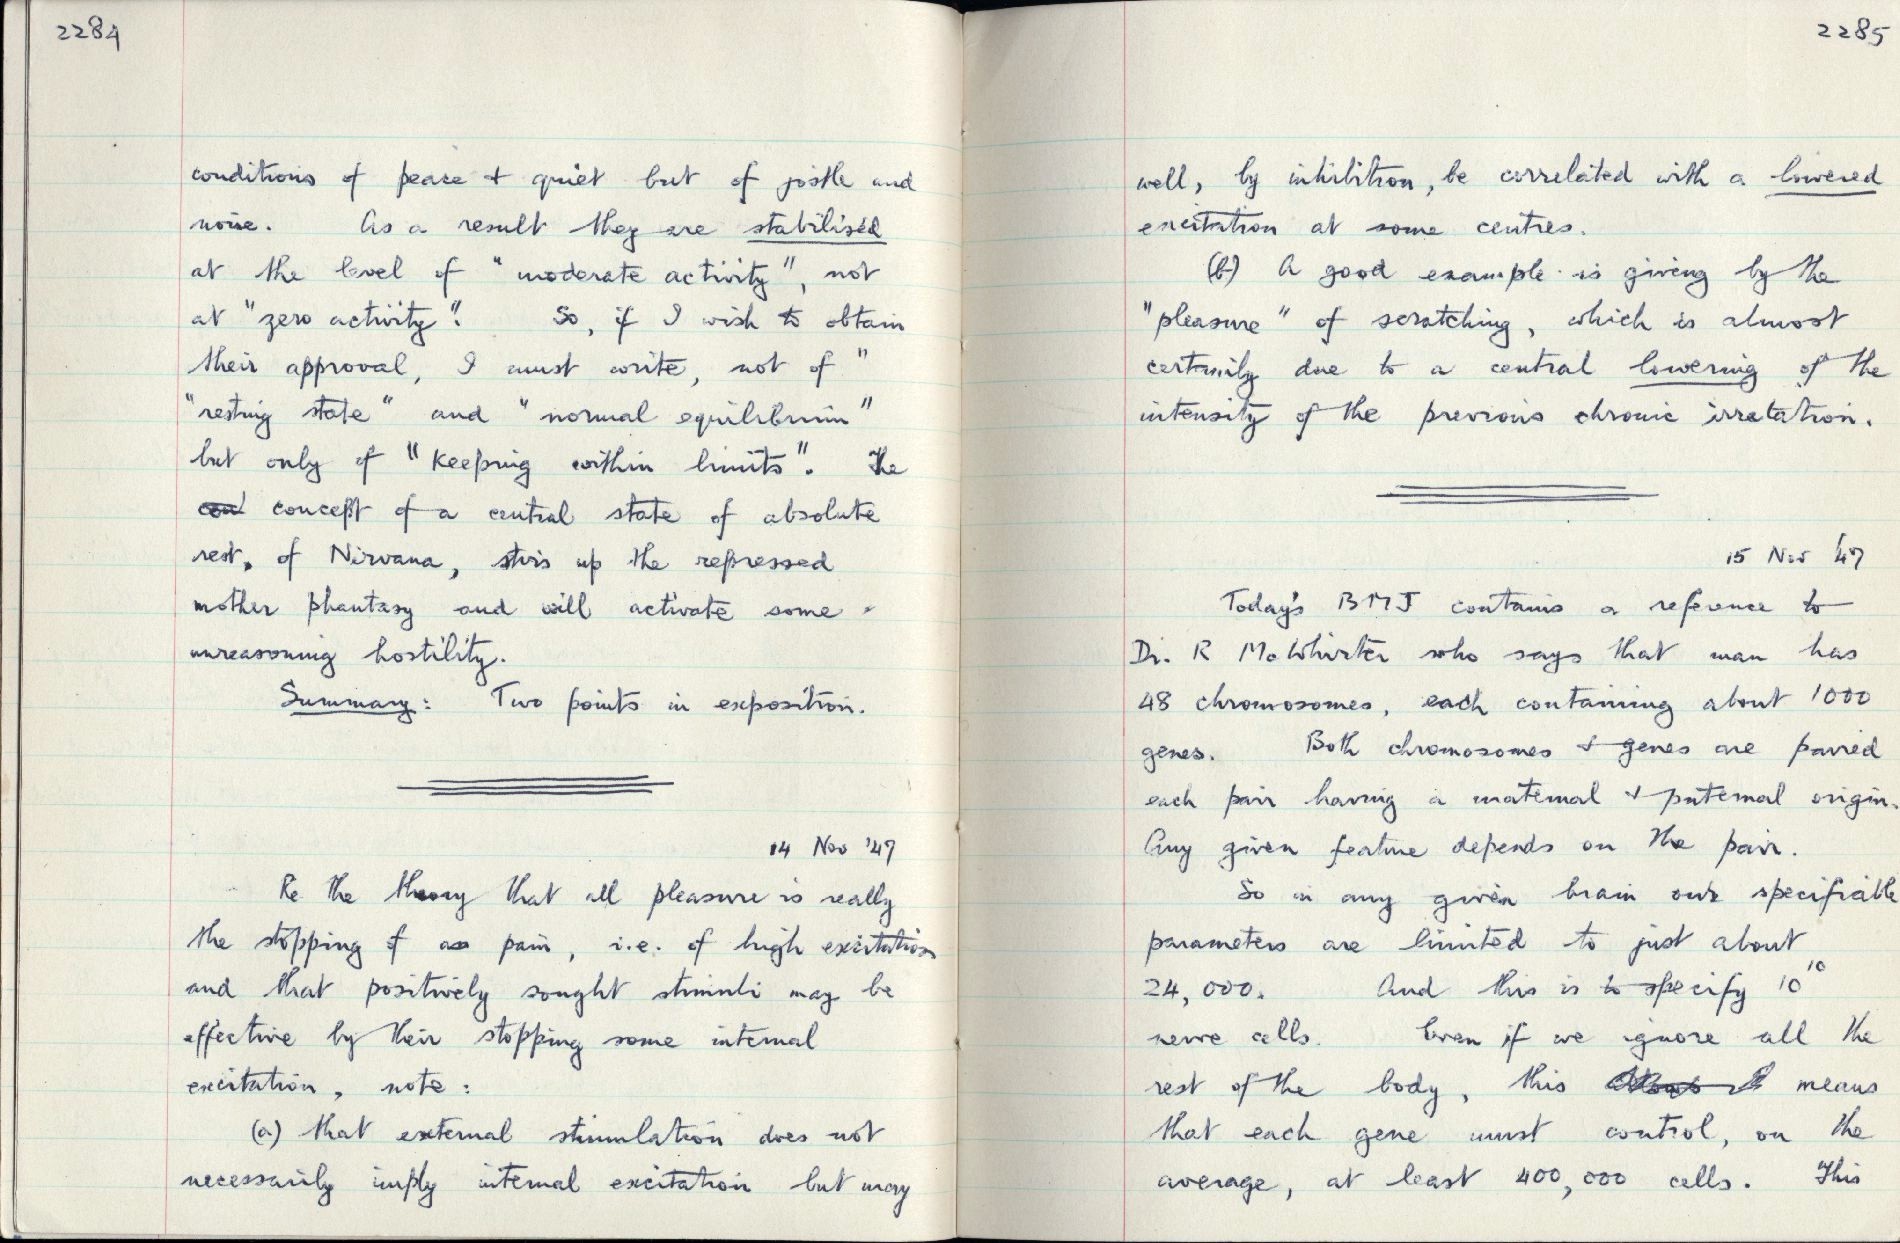 2284
conditions of peace & quiet but of jostle and
noise. As a result they are stabilised
at the level of "moderate activity", not
at "zero activity". So, if I wish to obtain
their approval, I must write, not of "
"resting state" and "normal equilibrium"
but only of "keeping within limits". The
con concept of a central state of absolute
rest, of Nirvana, stirs up the repressed
mother phantasy and will activate some
unreasoning hostility.
Summary: Two points in exposition.
14 Nov '47
Re the theory that all pleasure is really
the stopping of a pain, i.e. of high excitation
and that positively sought stimuli may be
effective by their stopping some internal
excitation, note:
(a) that external stimulation does not
necessarily imply internal excitation but may
2285
well, by inhibition, be correlated with a lowered
excitation at some centres.
(b) A good example is giving by the
"pleasure" of scratching, which is almost
certainly due to a central lowering of the
intensity of the previous chronic irretation.
15 Nov '47
Today's BMJ contains a reference to
Dr. R McWhirter who says that man has
48 chromosomes, each containing about 1000
genes. Both chromosomes & genes are paired
each pair having a maternal & paternal origin.
Any given feature depends on the pair.
So in any given brain our specifiable
parameters are limited to just about
24,000. And this is to specify 10^10
nerve cells. Even if we ignore all the
rest of the body, this means
that each gene must control, on the
average, at least 400,000 cells. This